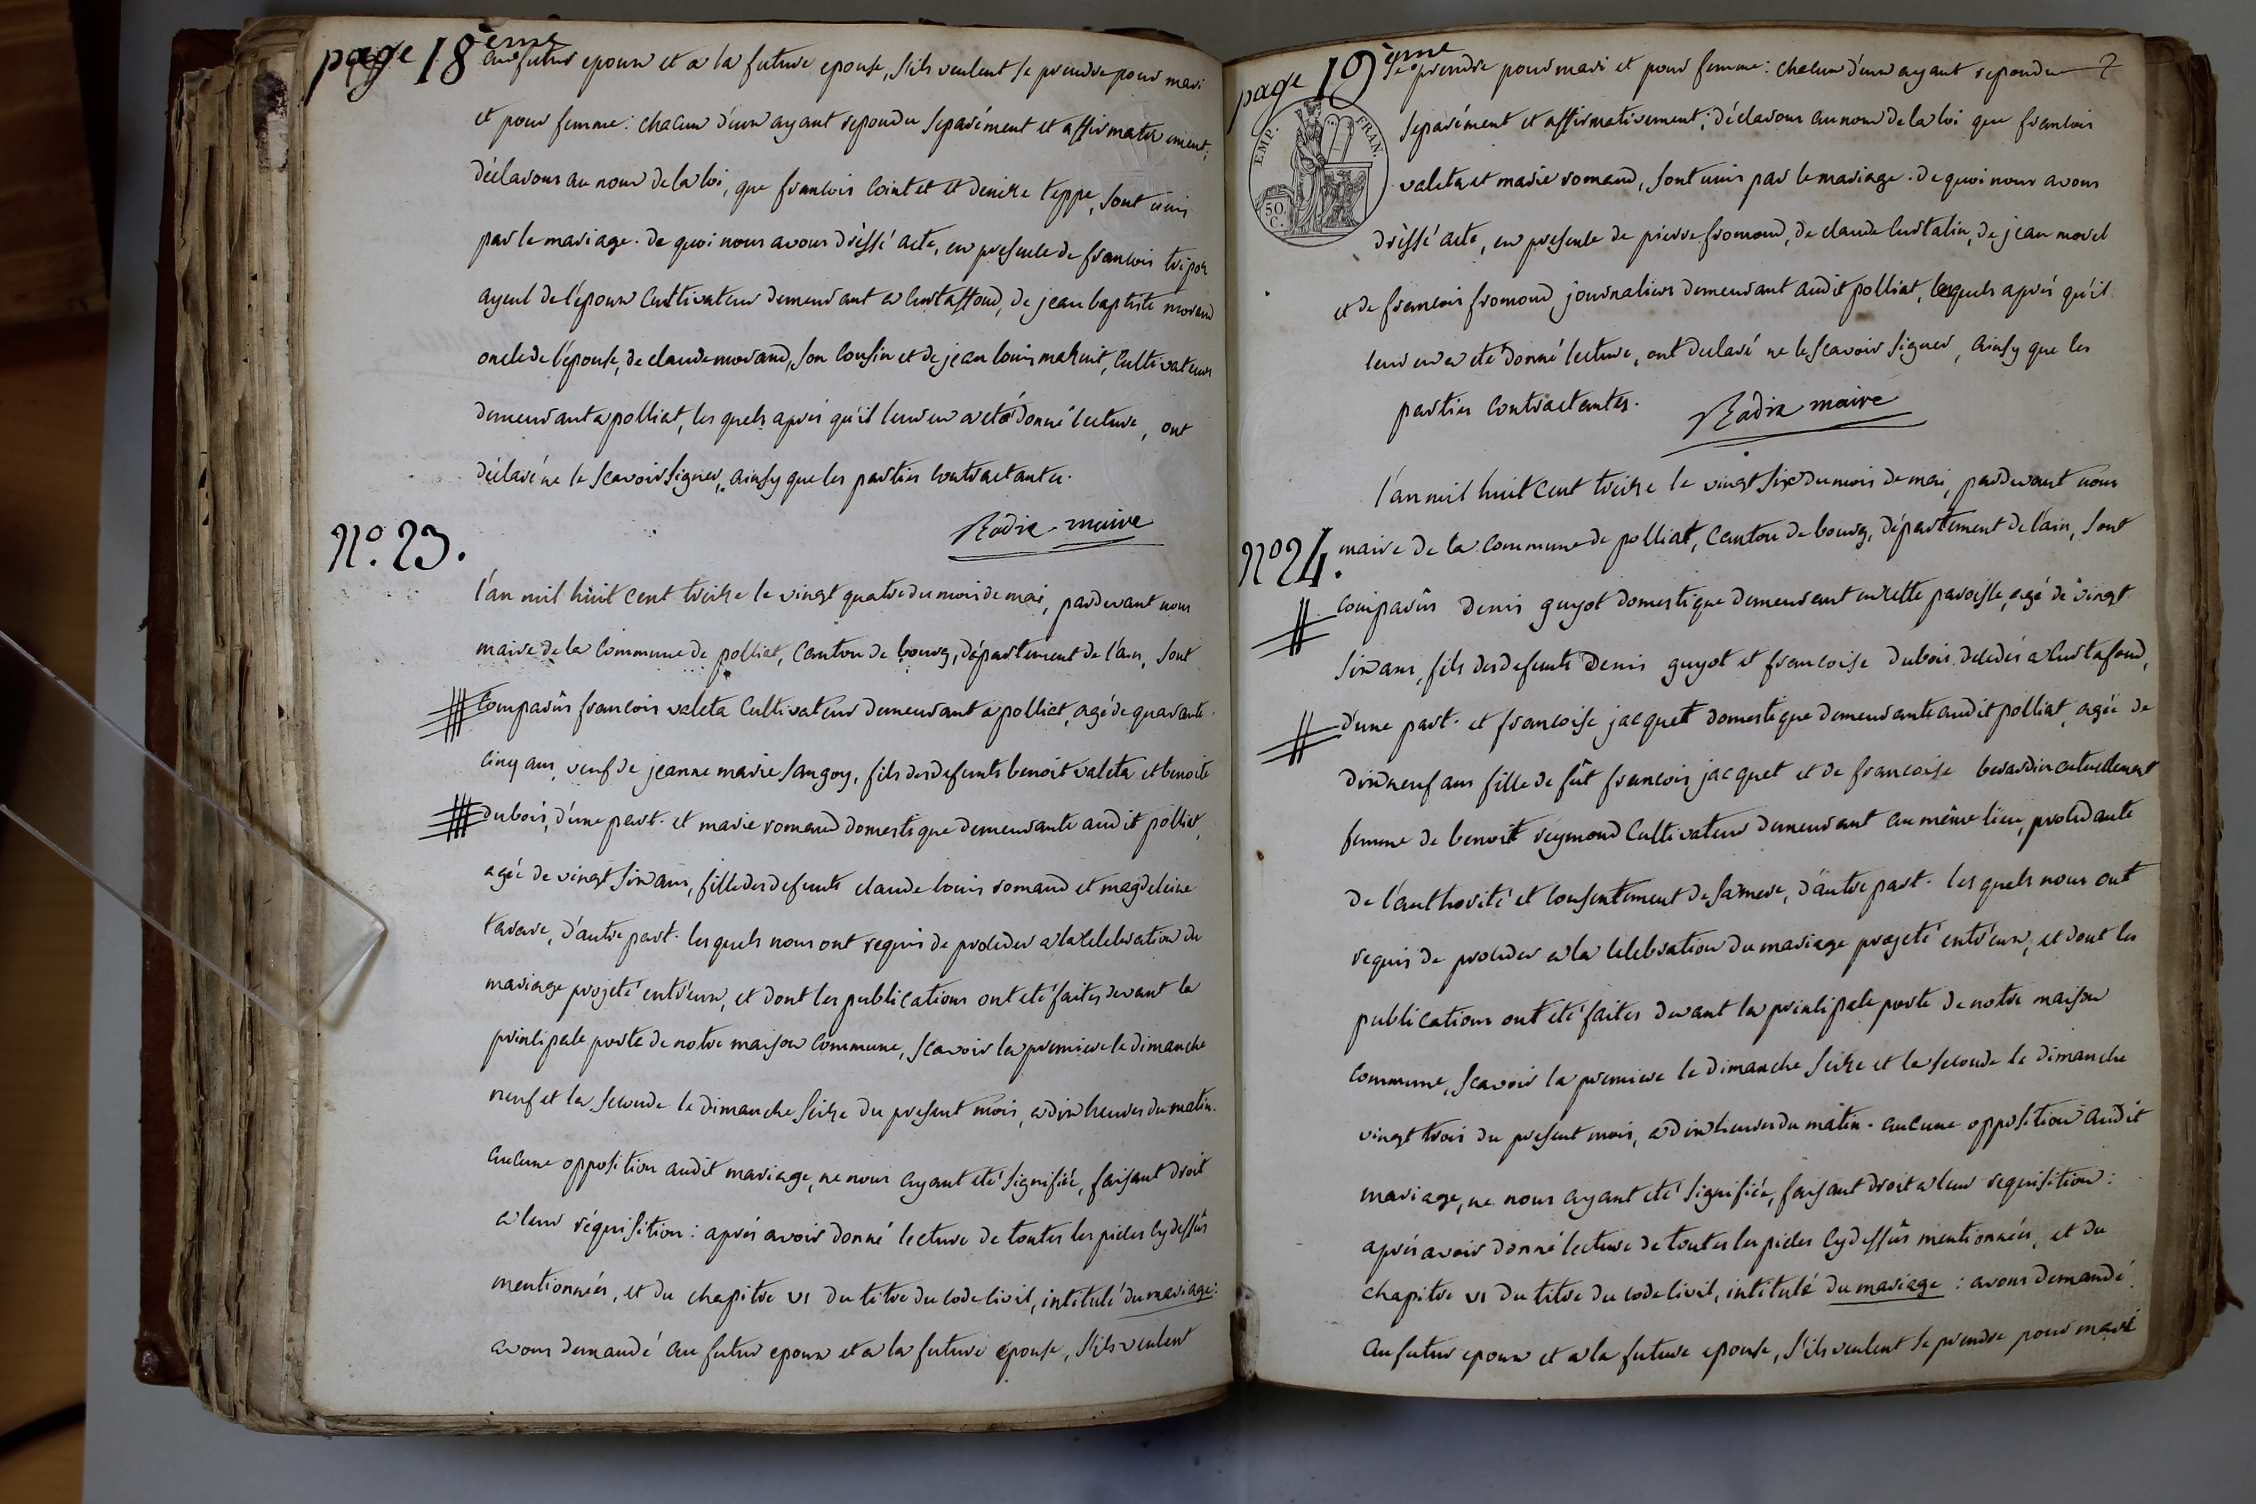 page 18ème
au futur epoux et a la future epouse, s'ils veulent se prendre pour mari
et pour femme : chacun d'eux ayant repondu separément et affirmativement ;
déclarons au nom de la loi, que francois cointet et denise teppe, sont unis
par le mariage. de quoi nous avons dréssé acte, en presence de francois
ayeul de l'époux cultivateur demeurant a curtaffond, de jean baptiste morand
oncle de l'épouse, de claude morand, son cousin et de jean louis mahuit, cultivateurs
demeurant a polliat, les quels aprés qu'il leur en a eté donné lecture, ont
déclaré ne le scavoir signer, ainsy que les parties contractantes.
Rodix maire
N.o 23.
l'an mil huit cent treize le vingt quatre du mois de mai, pardevant nous
maire de la commune de polliat, canton de bourg, département de l'ain, sont
comparûs francois valeta cultivateur demeurant a polliat, agé de quarante
cinq ans, veuf de jeanne marie sangoy, fils des defunts benoit valeta et benoite
dubois, d'une part. et marie romand domestique demeurante audit polliat,
agée de vingt six ans, fille des defunts claude louis romand et magdeleine
tavare, d'autre part. les quels nous ont requis de proceder a la celebration du
mariage projeté entr'eux, et dont les publications ont eté faites devant la
principale porte de notre maison commune, scavoir la premiere le dimanche
neuf et la seconde le dimanche seize du present mois, a dix heures du matin.
aucune opposition audit mariage, ne nous ayant eté signifiée, faisant droit
a leur réquisition : aprés avoir donné lecture de toutes les pieces cy dessûs
mentionnées, et du chapitre VI du titre du code civil, intitulé du mariage :
avons demandé au futur epoux et a la future epouse, s'ils veulent
page 19ème
se prendre pour mari et pour femme : chacun d'eux ayant repondu
EMP. FRAN.
50 C.
separément et affirmativement ; déclarons au nom de la loi que francois
valeta et marie romand, sont unis par le mariage. de quoi nous avons
dréssé acte, en presence de pierre fromond, de claude curtalin, de jean morel
et de francois fromond journaliers demeurant audit polliat, lesquels aprés qu'il
leur en a eté donné lecture, ont declaré ne le scavoir signer, ainsy que les
parties contractantes.
Rodix maire
l'an mil huit cent treize le vingt six du mois de mai, pardevant nous
No 24.
maire de la commune de polliat, canton de bourg, département de l'ain, sont
comparûs denis guyot domestique demeurant en cette paroisse, agé de vingt
six ans, fils des defunts denis guyot et francoise dubois decedés a curtafond,
d'une part. et francoise jacquet domestique demeurante audit polliat, agée de
dix neuf ans fille de fût francois jacquet et de francoise berardin actuellement
femme de benoit reymond cultivateur demeurant au même lieu, procedante
de l'authorité et consentement de sa mere, d'autre part. les quels nous ont
requis de proceder a la celebration du mariage projeté entr'eux, et dont les
publications ont eté faites devant la principale porte de notre maison
commune, scavoir la premiere le dimanche seize et la seconde le dimanche
vingt trois du present mois, a dix heures du matin. aucune opposition audit
mariage, ne nous ayant eté signifiée, faisant droit a leur requisition :
aprés avoir donné lecture de toutes les pieces cy dessûs mentionnées, et du
chapitre VI du titre du code civil, intitulé du mariage : avons demandé
au futur epoux et a la future epouse, s'ils veulent se prendre pour mari